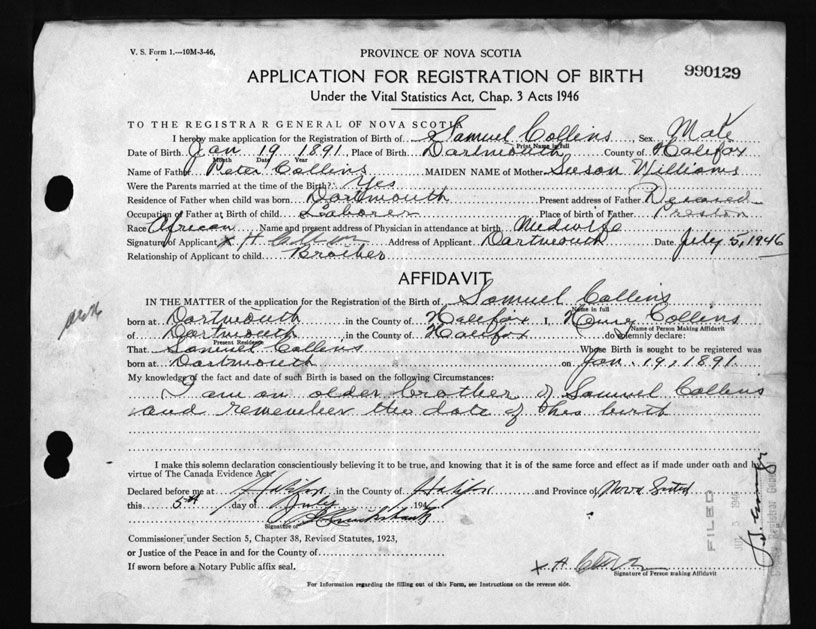 V. S. Form 1.—10M-3-46,
PROVINCE OF NOVA SCOTIA
990129
APPLICATION FOR REGISTRATION OF BIRTH
Under the Vital Statistics Act, Chap. 3 Acts 1946
TO THE REGISTRAR GENERAL OF NOVA SCOTIA
I hereby make application for the Registration of Birth of Samuel Collins Sex Male
Print Name in full
Date of Birth Jan 19 1891 Place of Birth Dartmouth County of Halifax
Month Date Year
Name of Father Peter Collins MAIDEN NAME of Mother Susan Williams
Were the Parents married at the time of the Birth? Yes
Residence of Father when child was born Dartmouth Present address of Father Deceased
Occupation of Father at Birth of child Laborer Place of birth of Father Preston
Race African Name and present address of Physician in attendance at birth Midwife
Signature of Applicant X H Collins Address of Applicant Dartmouth Date July 5, 1946
Relationship of Applicant to child Brother
AFFIDAVIT
IN THE MATTER of the application for the Registration of the Birth of Samuel Collins
Name in full
born at Dartmouth in the County of Halifax I, Henry Collins
Name of Person Making Affidavit
of Dartmouth in the County of Halifax do solemnly declare:
Present Residence
That Samuel Collins Whose Birth is sought to be registered was
born at Dartmouth on Jan. 19, 1891.
My knowledge of the fact and date of such Birth is based on the following Circumstances:
I am an older brother of Samuel Collins
and remember the date of this birth
I make this solemn declaration conscientiously believing it to be true, and knowing that it is of the same force and effect as if made under oath and by
virtue of The Canada Evidence Act.
Declared before me at Halifax in the County of Halifax and Province of Nova Scotia
this 5th day of July 194
Signature of
Commissioner under Section 5, Chapter 38, Revised Statutes, 1923,
or Justice of the Peace in and for the County of
If sworn before a Notary Public affix seal.
X H Collins
Signature of Person making Affidavit
FILED
For Information regarding the filling out of this Form, see Instructions on the reverse side.